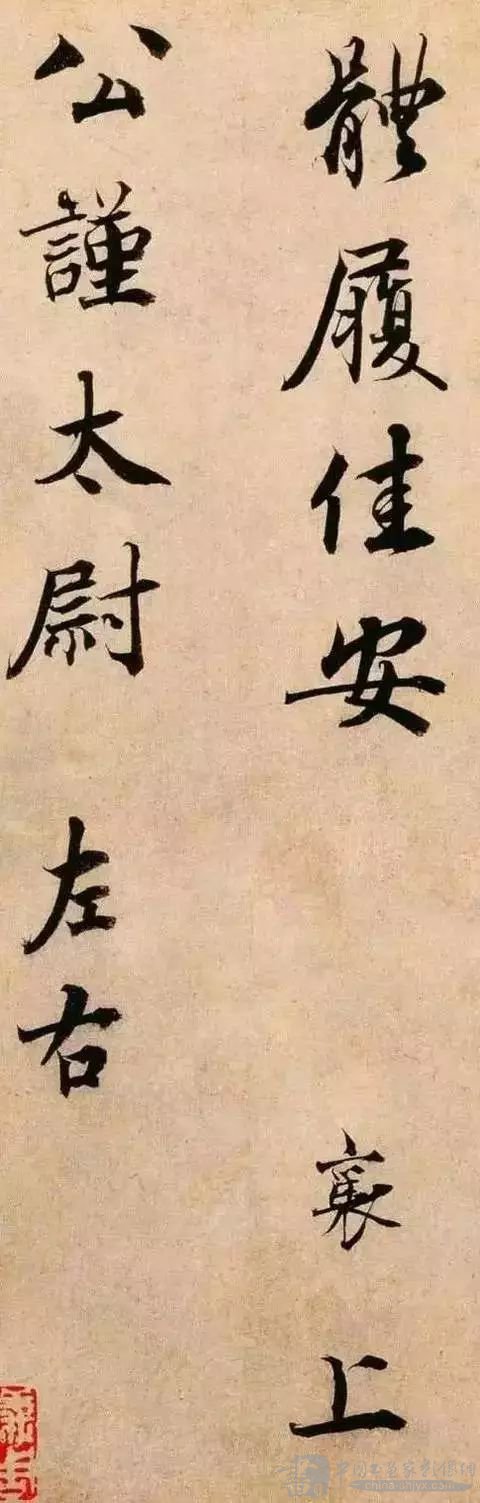 體履佳安 襄上
公謹太尉 左右
china-shjyx.com